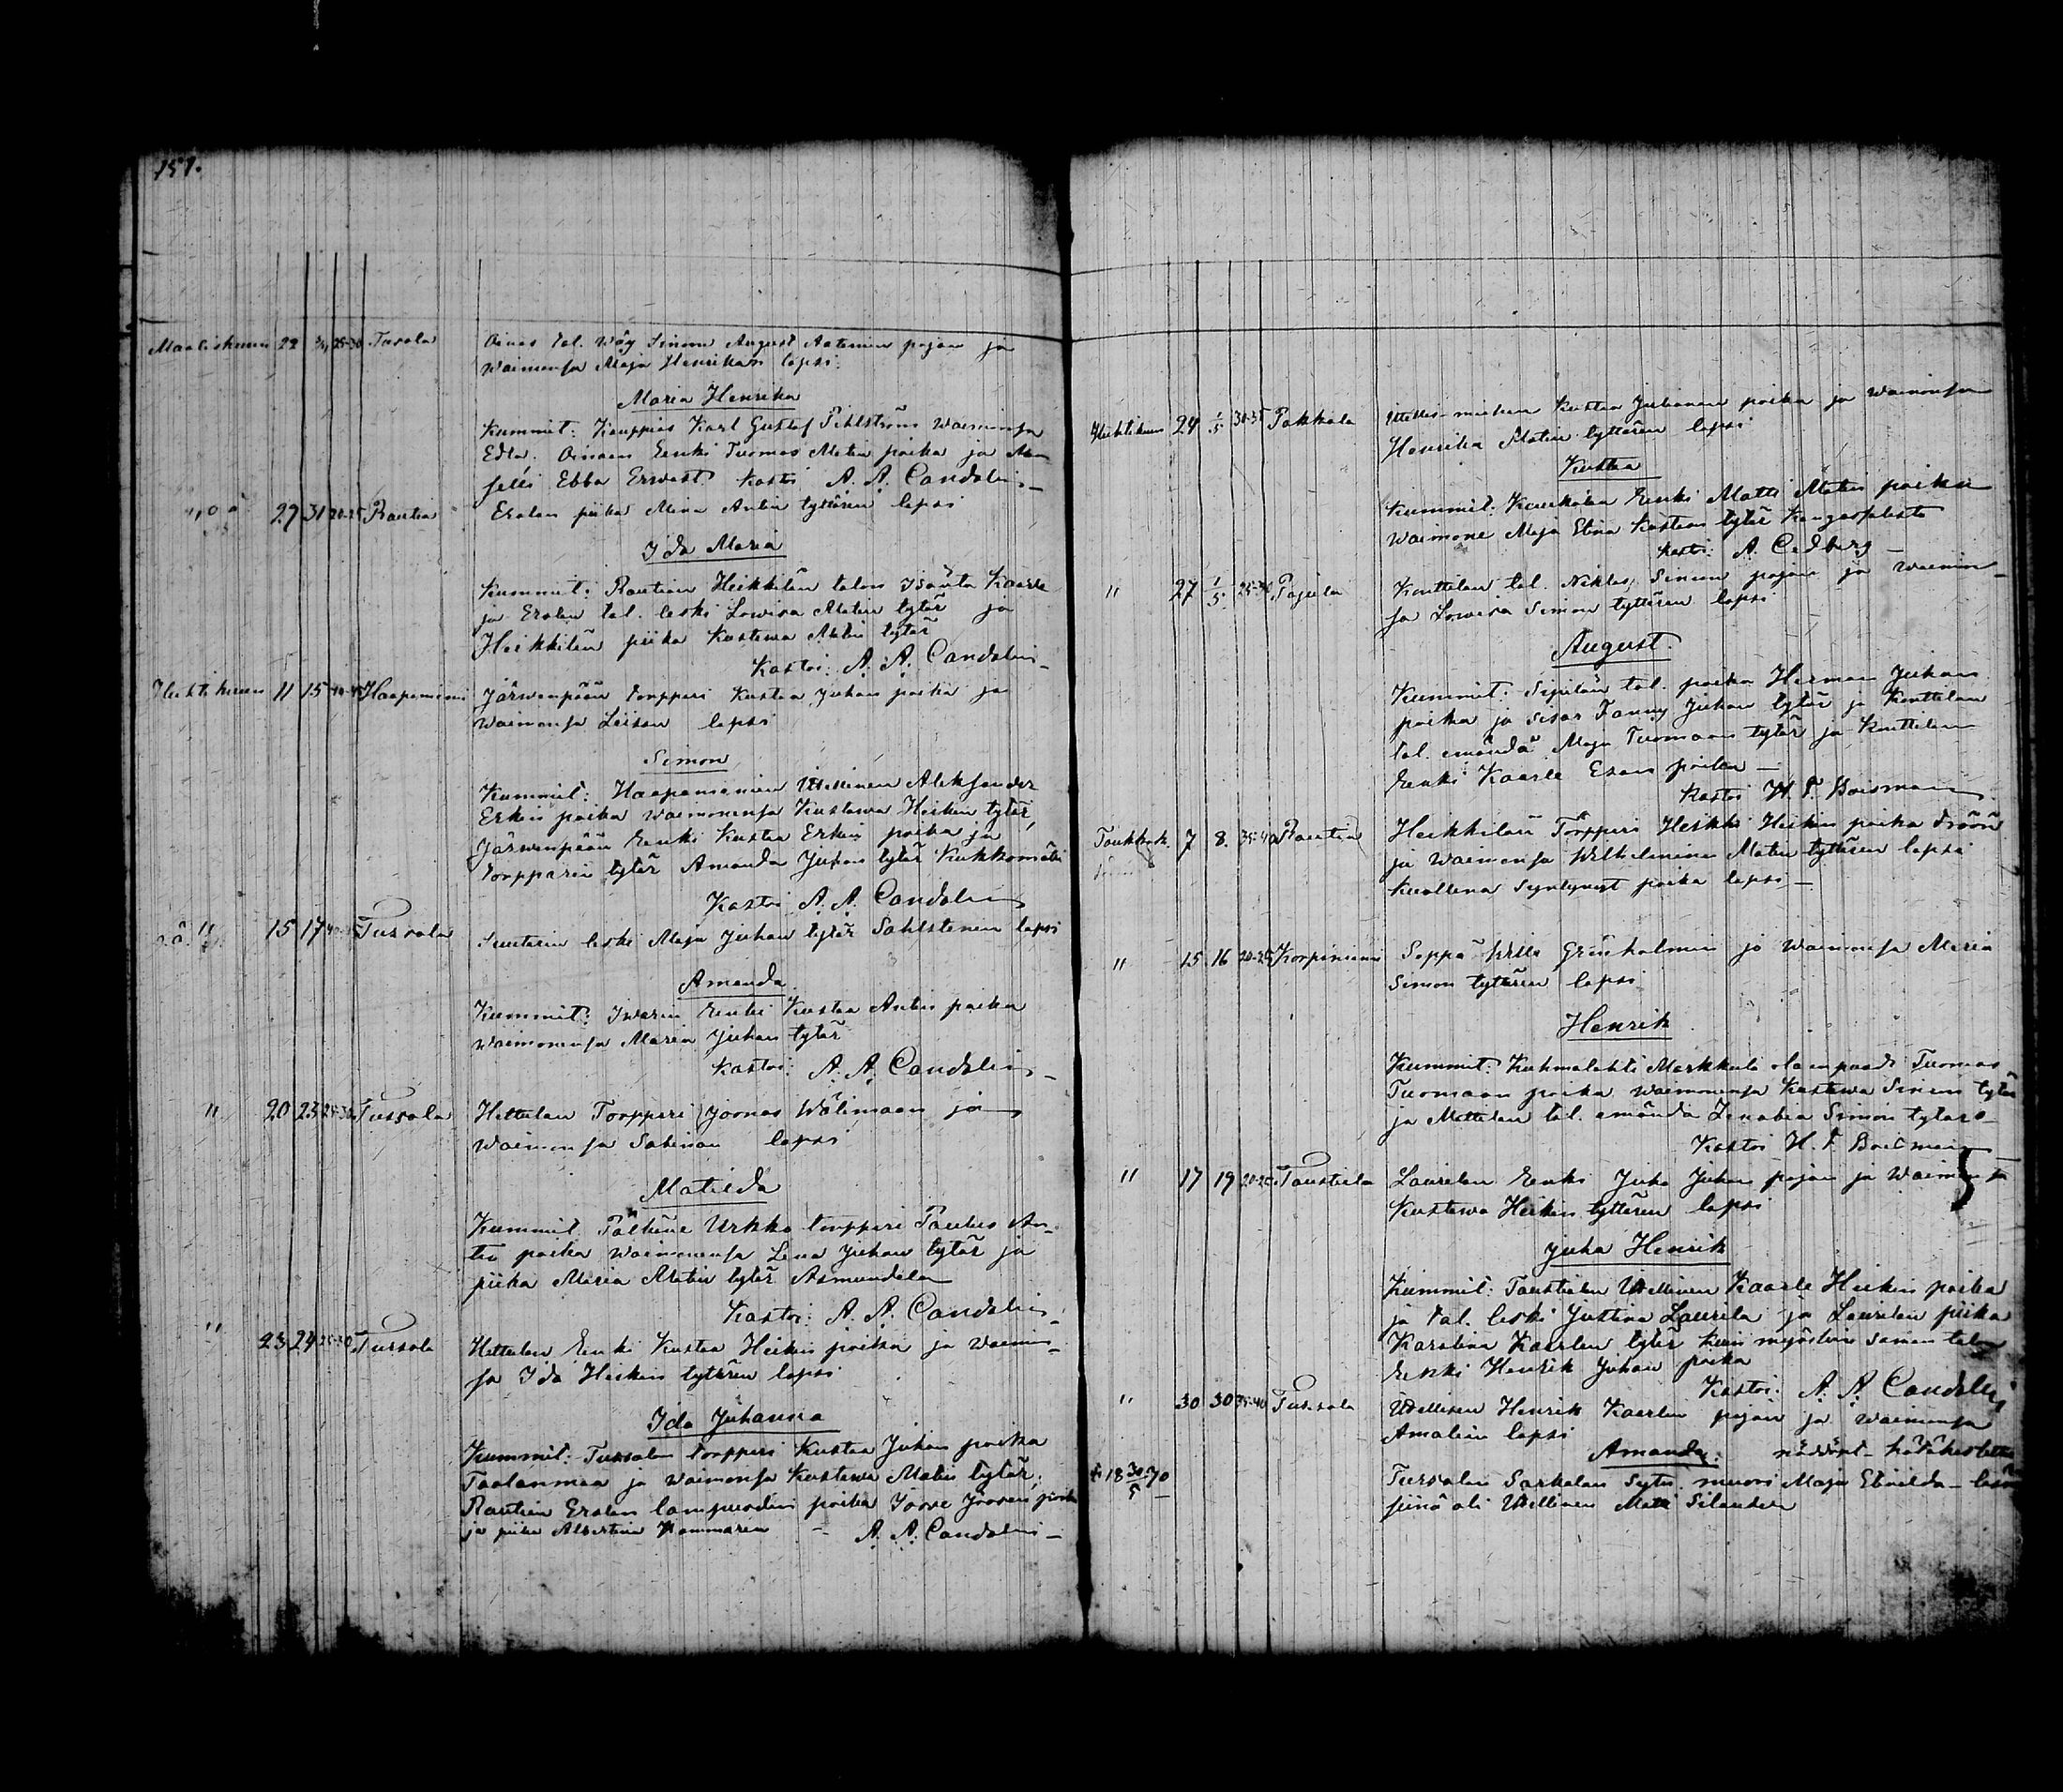 151.
Maaliskuun 22 25-30 Tavola Oinas tal. Wäy Simon August Antinin pojan ja
Waimonsa Maja Henrikan lapsi.
Maria Henrika
Kummit: Kauppias Karl Gustaf Pihlström Waimonsa
Edla. Oinaan Renki Tuomas Matin poika ja
Ebba Kastoi A. A. Candolin
" 27 31 20-25 Rautia Erolan piika Mina Antin tyttären lapsi
Ida Maria
Kummit: Raution Heikkilän talon Isäntä Kaarle
ja Erolan tal. leski Lowisa Matin tytär ja
Heikkilän piika Kustawa Matin tytär
Kastoi: A. A. Candolin
Huhtikuun 11 15 40-45 Haapaniemi Järwenpään torppari Kustaa Juhan poika ja
Waimonsa Leisan lapsi
Simon
Kummit: Haapaniemien Itellinen Aleksander
Erkin poika Waimonensa Kustawa Heikin tytär,
Järwenpään Renki Kustaa Erkin poika ja
torpparin tytär Amanda Juhan tytär
Kastoi A. A. Candolin
" 15 17 Tursola Suutarin leski Maja Juhan tytär Sahlstenin lapsi
Amanda
Kummit: Iwarin Renki Kustaa Antin poika
Waimonensa Maria Juhan tytär
Kastoi: A. A. Candolin
" 20 23 25-30 Tursola Hettulan Torppari Joonas Wälimaan ja
Waimonsa Sabinan lapsi
Matilda
Kummit Pälkäne Urkko torppari Paulus An-
tin poika Waimonensa Lena Juhan tytär ja
piika Maria Matin tytär Asmundela
Kastoi: A. A. Candolin
" 23 24 25-30 Tursola Hettulan Renki Kustaa Heikin poika ja Waimon-
sa Ida Heikin tyttären lapsi
Ida Juhanna
Kummit: Tursolan torppari Kustaa Juhan poika
Taalanmaa ja Waimonsa Kustawa Matin tytär,
Raution Erolan lampuodin poika
ja piika Albertina A. A. Candolin
Huhtikuun 24 1/5 30-35 Pakkala Itellis-miehen Kustaa Juhanan poika ja Waimonsa
Henrika Matin tyttären lapsi
Kustaa
Kummit: Renki Matti Matin poika
Waimone Maja Stina Kustaan tytär
Kastoi: A. Cedberg
" 27 1/5 Pajula Konttilan tal. Niklas Simon pojan ja Waimon-
sa Lowisa Simon tyttären lapsi
August.
Kummit: tal. poika Herman Juhan
poika ja sisar Fanny Juhan tytär ja Konttilan
tal. emändä Maja Tuomaan tytär ja Konttilan
Renki Kaarle Esan poika
Kastoi H. F. Boisman
Toukokuu 7 8. 35-40 Rautia Heikkilän Torppari Heikki Heikin poika
ja Waimonsa Wilhelmina Matin tyttären lapsi
Kuollena Syntynyt poika lapsi
" 15 16 20-25 Korpiniemi Seppä Wille Grönholmin ja Waimonsa Maria
Simon tyttären lapsi
Henrik
Kummit: Kuhmalahti Markkula Tuomas
Tuomaan poika Waimonensa Kustawa Simon tytär
ja Mattilan tal. emändä Simon tytär
Kastoi H. F. Boisman
" 17 19 20-25 Taustiala Laurilan Renki Juha Juhan pojan ja Waimonsa
Kustawa Heikin tyttären lapsi
Juha Henrik
Kummit: Taustialan Itellinen Kaarle Heikin poika
ja tal. leski Justina Laurila ja Laurilan piika
Karolina Kaarlen tytär kuin myöskin saman talon
Renki Henrik Juhan poika
Kastoi: A. A. Candolin
" 30 30 35-40 Tursola Itellisen Henrik Kaarlen pojan ja Waimonsa
Amalian lapsi
Amanda:
18 30/5 70 Tursolan muori Maja
oli Itellinen Silander